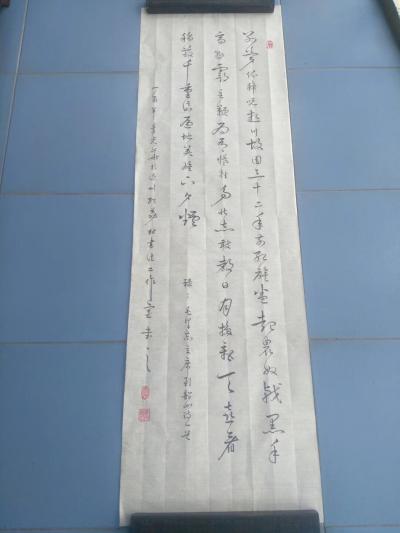 别梦依稀咒逝川故园三十二年前红旗卷起农奴戟黑手
高悬霸主鞭为有牺牲多壮志敢教日月换新天喜看
稻菽千重浪遍地英雄下夕烟
毛泽东主席到韶山诗一首
书法工作室